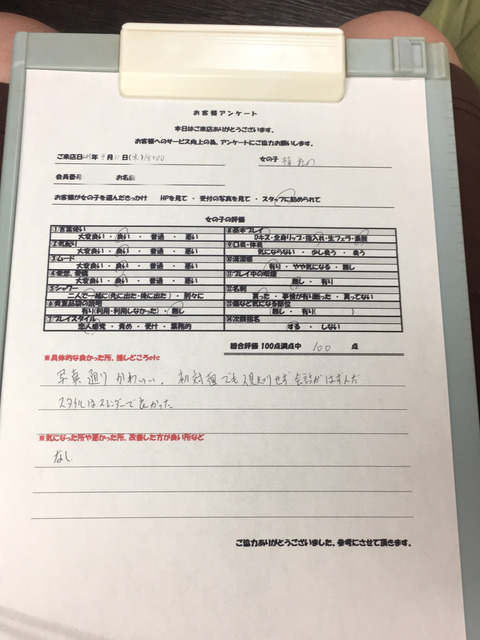 お客様アンケート
本日はご来店ありがとうございます。
お客様へのサービス向上の為、アンケートにご協力お願いします。
ご来店日 年 9月11日(木) 女の子
会員番号 お名前
お客様が女の子を選んださっかけ HPを見て ・ 受付の写真を見て ・ スタッフに勧められて
女の子の評価
①言葉使い
大変良い ・ 良い ・ 普通 ・ 悪い
②気配り
大変良い ・ 良い ・ 普通 ・ 悪い
③ムード
大変良い ・ 良い ・ 普通 ・ 悪い
④愛想、愛嬌
大変良い ・ 良い ・ 普通 ・ 悪い
⑤シャワー
二人で一緒に(先に出た・後に出た) ・ 別々に
⑥貴重品袋の説明
有り(利用・利用しなかった) ・ 無し
⑦プレイスタイル
恋人感覚 ・ 責め ・ 受け ・ 業務的
⑧基本プレイ
Dキス・全身リップ・指入れ・生フェラ・素股
⑨口臭・体臭
気にならない ・ 少し臭う ・ 臭う
⑩清潔感
有り ・ やや気になる ・ 無し
⑪プレイ中の
無し ・ 有り( )
⑫名刺
貰った ・ 事情が有り断った ・ 貰ってない
無し ・ 有り( )
⑭次回指名
する ・ しない
総合評価 100点満点中 100 点
※具体的な良かった所、推しどころetc
写真通りかわいい。初対面でも人見知りせず会話がはずんだ
スタイルはスレンダーで良かった
※気になった所や悪かった所、改善した方が良い所など
なし
ご協力ありがとうございました。参考にさせて頂きます。